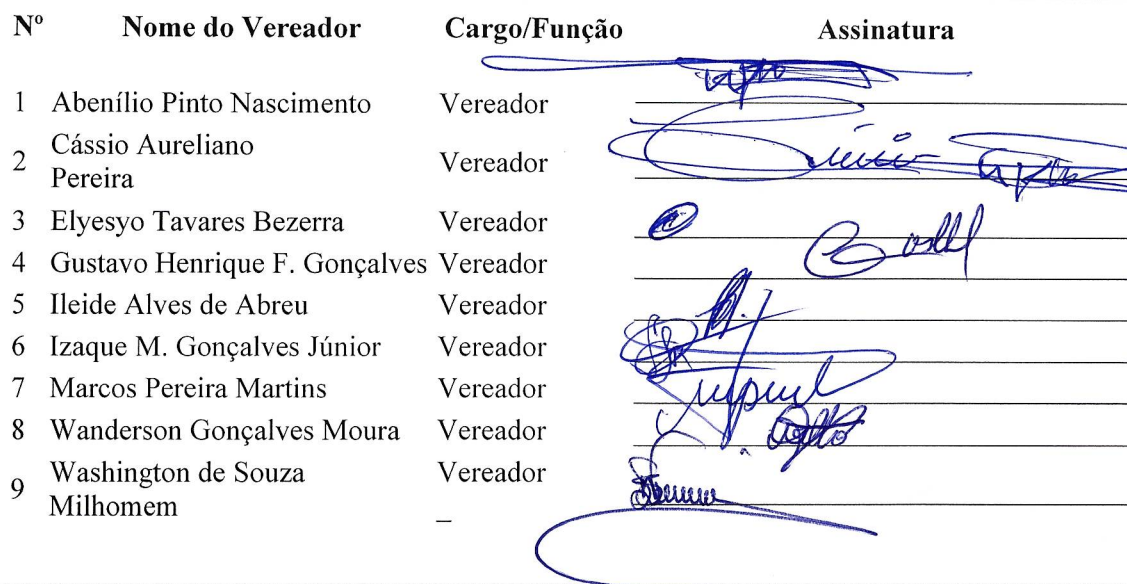 Nº Nome do Vereador Cargo/Função Assinatura
1 Abenílio Pinto Nascimento Vereador
2 Cássio Aureliano Pereira Vereador
3 Elyesyo Tavares Bezerra Vereador
4 Gustavo Henrique F. Gonçalves Vereador
5 Ileide Alves de Abreu Vereador
6 Izaque M. Gonçalves Júnior Vereador
7 Marcos Pereira Martins Vereador
8 Wanderson Gonçalves Moura Vereador
9 Washington de Souza Milhomem Vereador
_